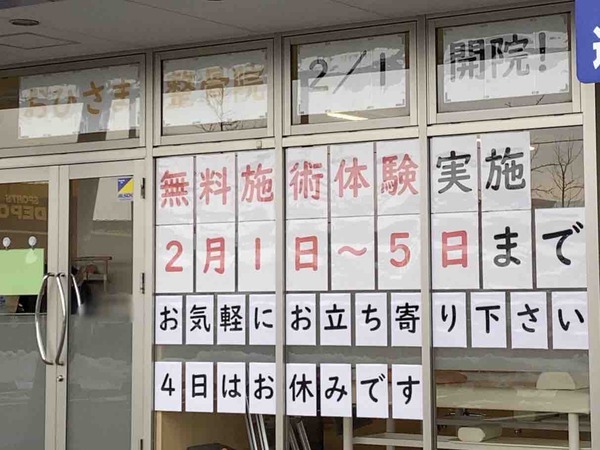 おひさま 整骨院 2/1 開院!
無料施術体験実施
2月1日～5日まで
お気軽にお立ち寄り下さい
4日はお休みです
SPORTS
DEPO